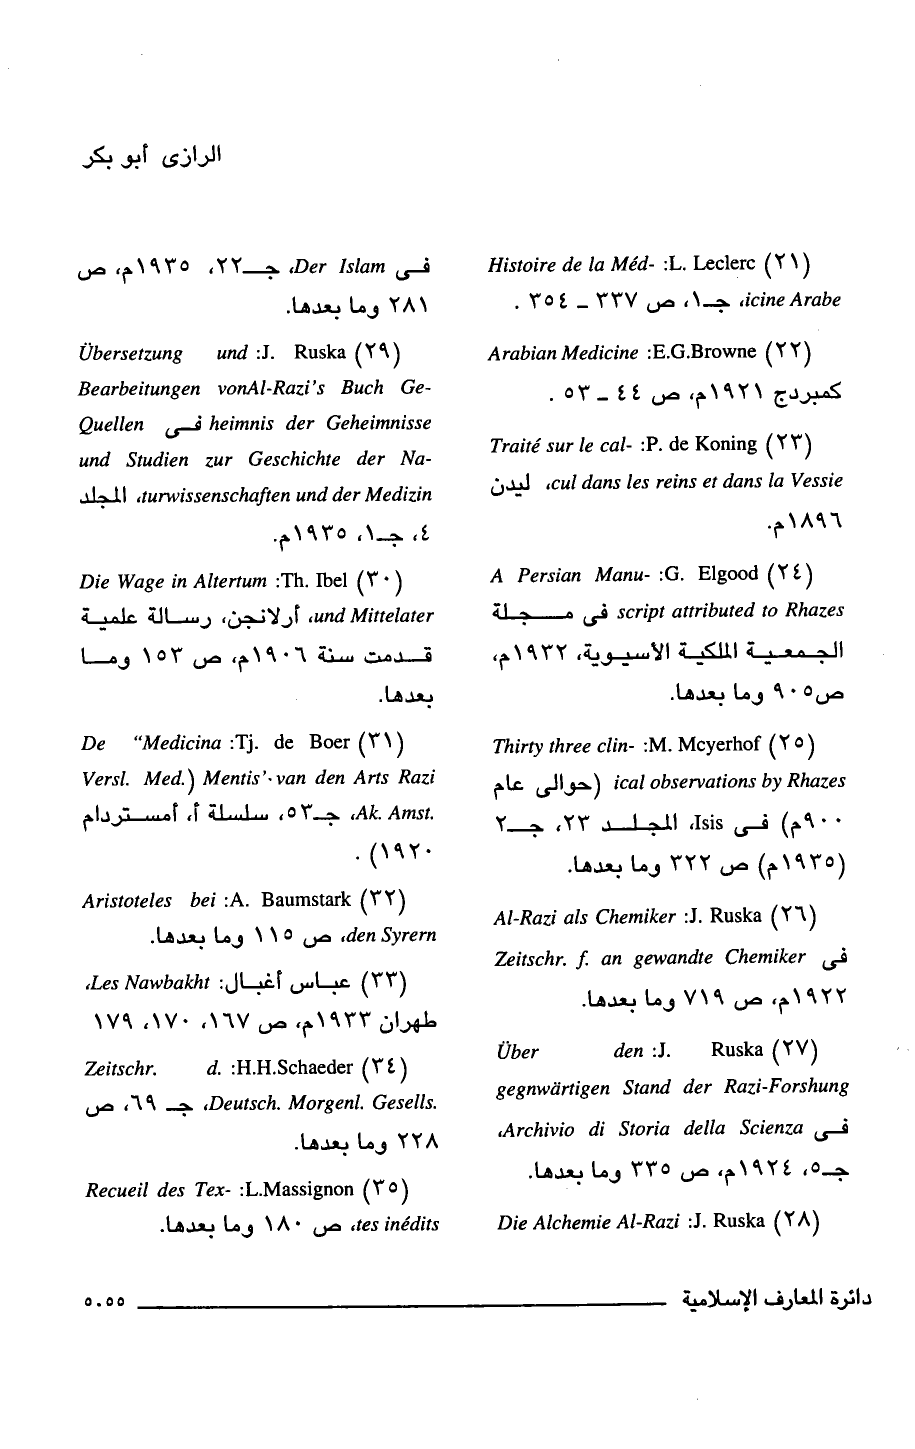 الرازى أبو بكر
(٢١) L. Leclerc: Histoire de la Méd-
icine Arabe، جـ١، ص ٣٣٧ ــ ٣٥٤ .
(٢٢) E.G.Browne: Arabian Medicine
كمبردج ١٩٢١م، ص ٤٤ ــ ٥٣ .
(٢٣) P. de Koning: Traité sur le cal-
cul dans les reins et dans la Vessie، ليدن
١٨٩٦م.
(٢٤) G. Elgood: A Persian Manu-
script attributed to Rhazes فى مـجـلـة
الـجـمـعـيـة الملكيـة الأسـيـوية، ١٩٣٢م،
ص٩٠٥ وما بعدها.
(٢٥) M. Mcyerhof: Thirty three clin-
ical observations by Rhazes (حوالى عام
٩٠٠م) فـى Isis، المجلـد ٢٣، جـ٢
(١٩٣٥م) ص ٣٢٢ وما بعدها.
(٢٦) J. Ruska: Al-Razi als Chemiker
فى Zeitschr. f. an gewandte Chemiker
١٩٢٢م، ص ٧١٩ وما بعدها.
(٢٧) J. Ruska: Über den
gegnwärtigen Stand der Razi-Forshung
فـى Archivio di Storia della Scienza،
جـ٥، ١٩٢٤م، ص ٣٣٥ وما بعدها.
(٢٨) J. Ruska: Die Alchemie Al-Razi
فـى Der Islam، جــ٢٢، ١٩٣٥م، ص
٢٨١ وما بعدها.
(٢٩) J. Ruska: Übersetzung und
Bearbeitungen vonAl-Razi's Buch Ge-
heimnis der Geheimnisse فـى Quellen
und Studien zur Geschichte der Na-
turwissenschaften und der Medizin، المجلد
٤، جـ١، ١٩٣٥م.
(٣٠) Th. Ibel: Die Wage in Altertum
und Mittelater، أرلانجن، رسـالة علميـة
قـدمت سنة ١٩٠٦م، ص ١٥٣ ومـا
بعدها.
(٣١) Tj. de Boer: De “Medicina
Mentis'· van den Arts Razi (Versl. Med.
Ak. Amst.، جـ٥٣، سلسلة أ، أمستردام
١٩٢٠) .
(٣٢) A. Baumstark: Aristoteles bei
den Syrern، ص ١١٥ وما بعدها.
(٣٣) عبـاس أغبـال: Les Nawbakht،
طهران ١٩٣٣م، ص ١٦٧، ١٧٠، ١٧٩
(٣٤) H.H.Schaeder: Zeitschr. d.
Deutsch. Morgenl. Gesells.، جـ ٦٩، ص
٢٢٨ وما بعدها.
(٣٥) L.Massignon: Recueil des Tex-
tes inédits، ص ١٨٠ وما بعدها.
دائرة المعارف الإسلامية ٥٠٥٥